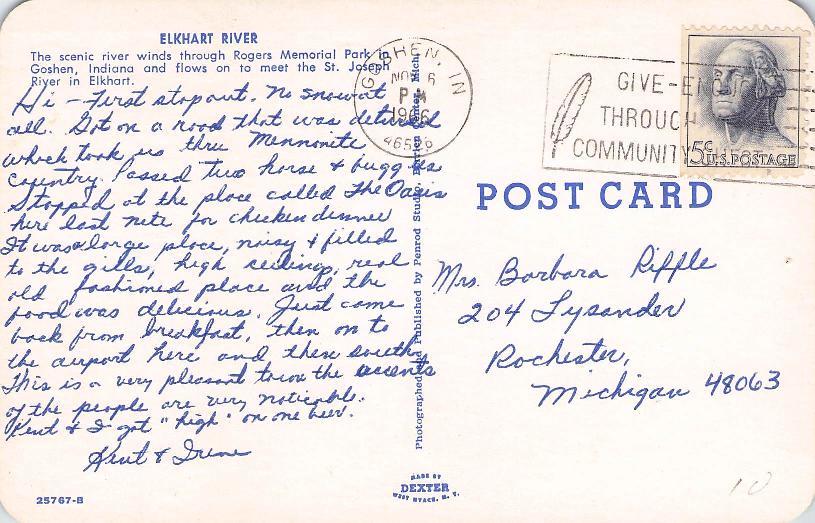 ELKHART RIVER
The scenic river winds through Rogers Memorial Park in
Goshen, Indiana and flows on to meet the St. Joseph
River in Elkhart.
Hi - First stop out. No snow at
all. Got on a road that was detoured
which took us thru Mennonite
country. Passed two horse & buggies
Stopped at the place called The Oasis
here last nite for chicken dinner
It was a large place, noisy & filled
to the gills, high ceiling, real
old fashioned place and the
food was delicious. Just came
back from breakfast, then on to
the airport here and then south.
This is a very pleasant town the accents
of the people are very noticable.
Kent & I got "high" on one beer.
Kent & Irene
25767-B
Photographed and Published by Penrod Studio, Center, Mich.
MADE BY
DEXTER
WEST NYACK, N. Y.
GOSHEN, IN
NOV 6
PM
1966
46526
GIVE-
THROUGH
COMMUNITY
5¢ U.S. POSTAGE
POST CARD
Mrs. Barbara Riffle
204 Lysander
Rochester,
Michigan 48063
10